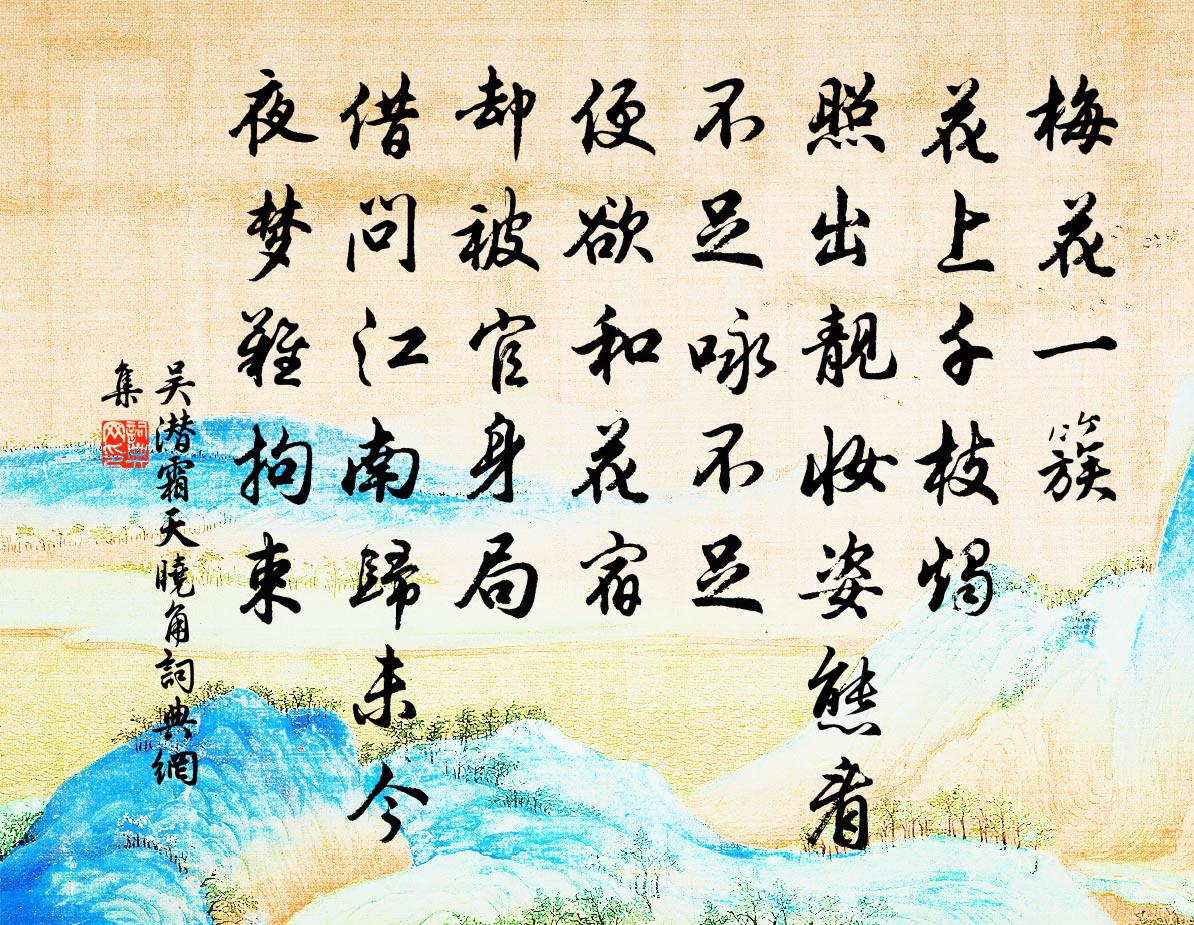 梅花一簇
花上千枝燭
照出靚妆姿態看
不足咏不足
便欲和花宿
却被官身局
借問江南歸未今
夜梦難拘束
吴潜霜天曉角詞典網
集